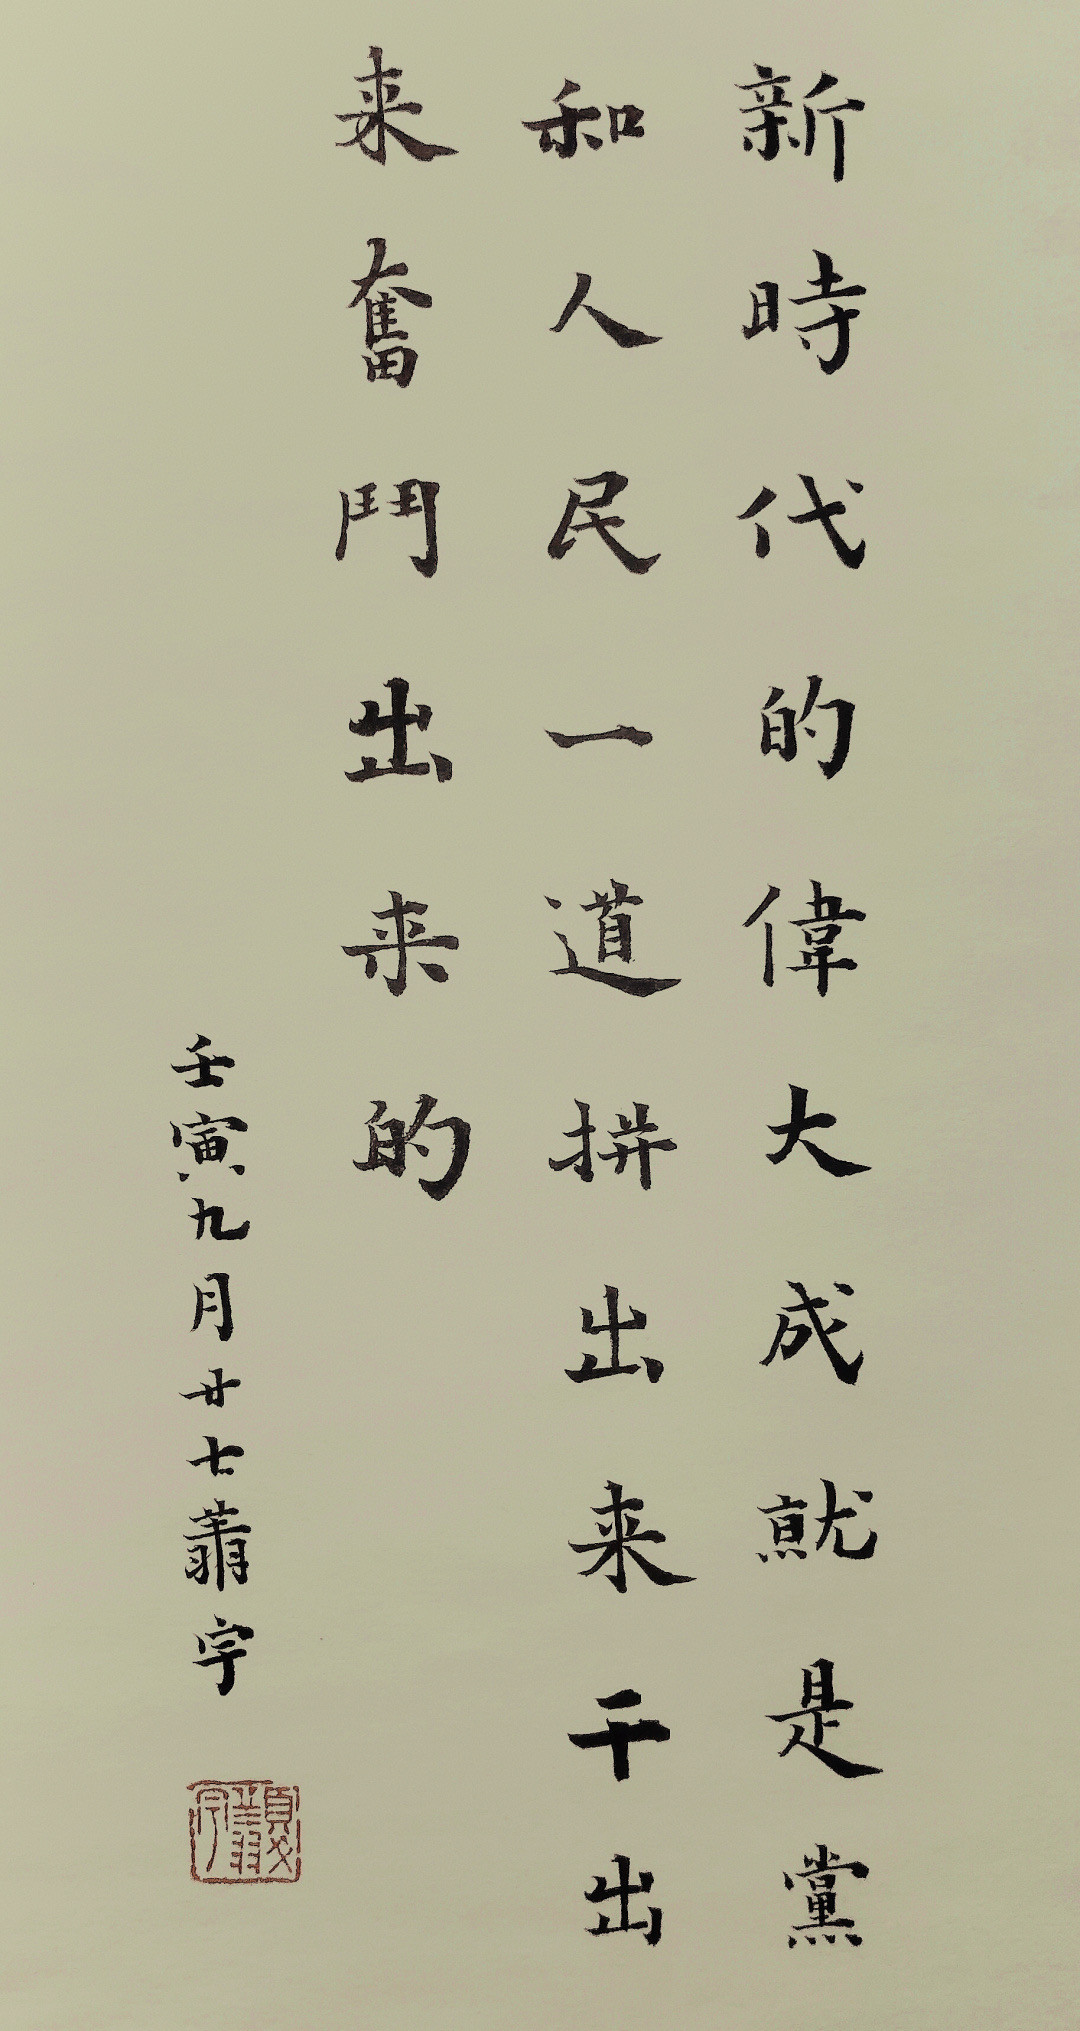 新時代的偉大成就是黨
和人民一道拼出来干出
来奮鬥出来的
壬寅九月廿七蕭宇